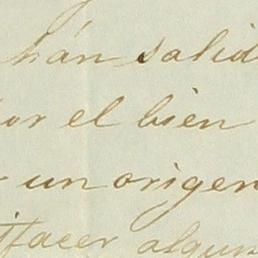 hán salid
or el bien
un origen
tfacer algun